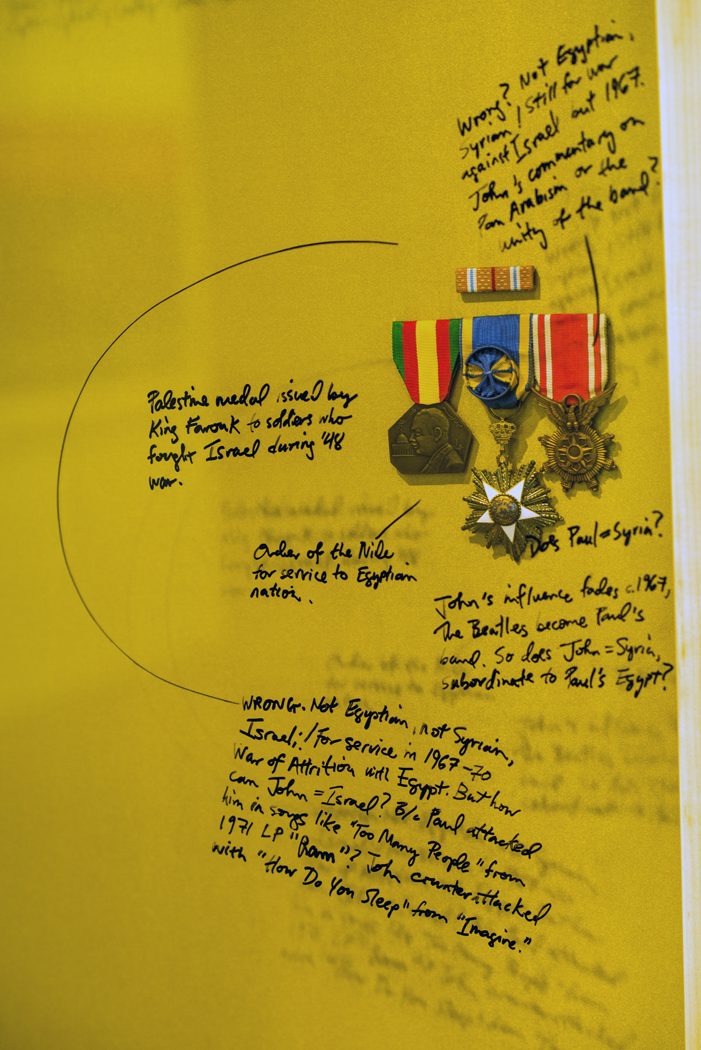 Wrong? Not Egyptian,
Syrian! Still for war
against Israel but 1967.
John's commentary on
Pan Arabism or the
unity of the band?
Palestine medal issued by
King Farouk to soldiers who
fought Israel during '48
war.
Order of the Nile
for service to Egyptian
nation.
Does Paul = Syria?
John's influence fades c.1967,
The Beatles become Paul's
band. So does John = Syria,
subordinate to Paul's Egypt?
WRONG. Not Egyptian, not Syrian,
Israeli! For service in 1967-70
War of Attrition with Egypt. But how
can John = Israel? B/c Paul attacked
him in songs like "Too Many People" from
1971 LP "Ram"? John counterattacked
with "How Do You Sleep" from "Imagine."